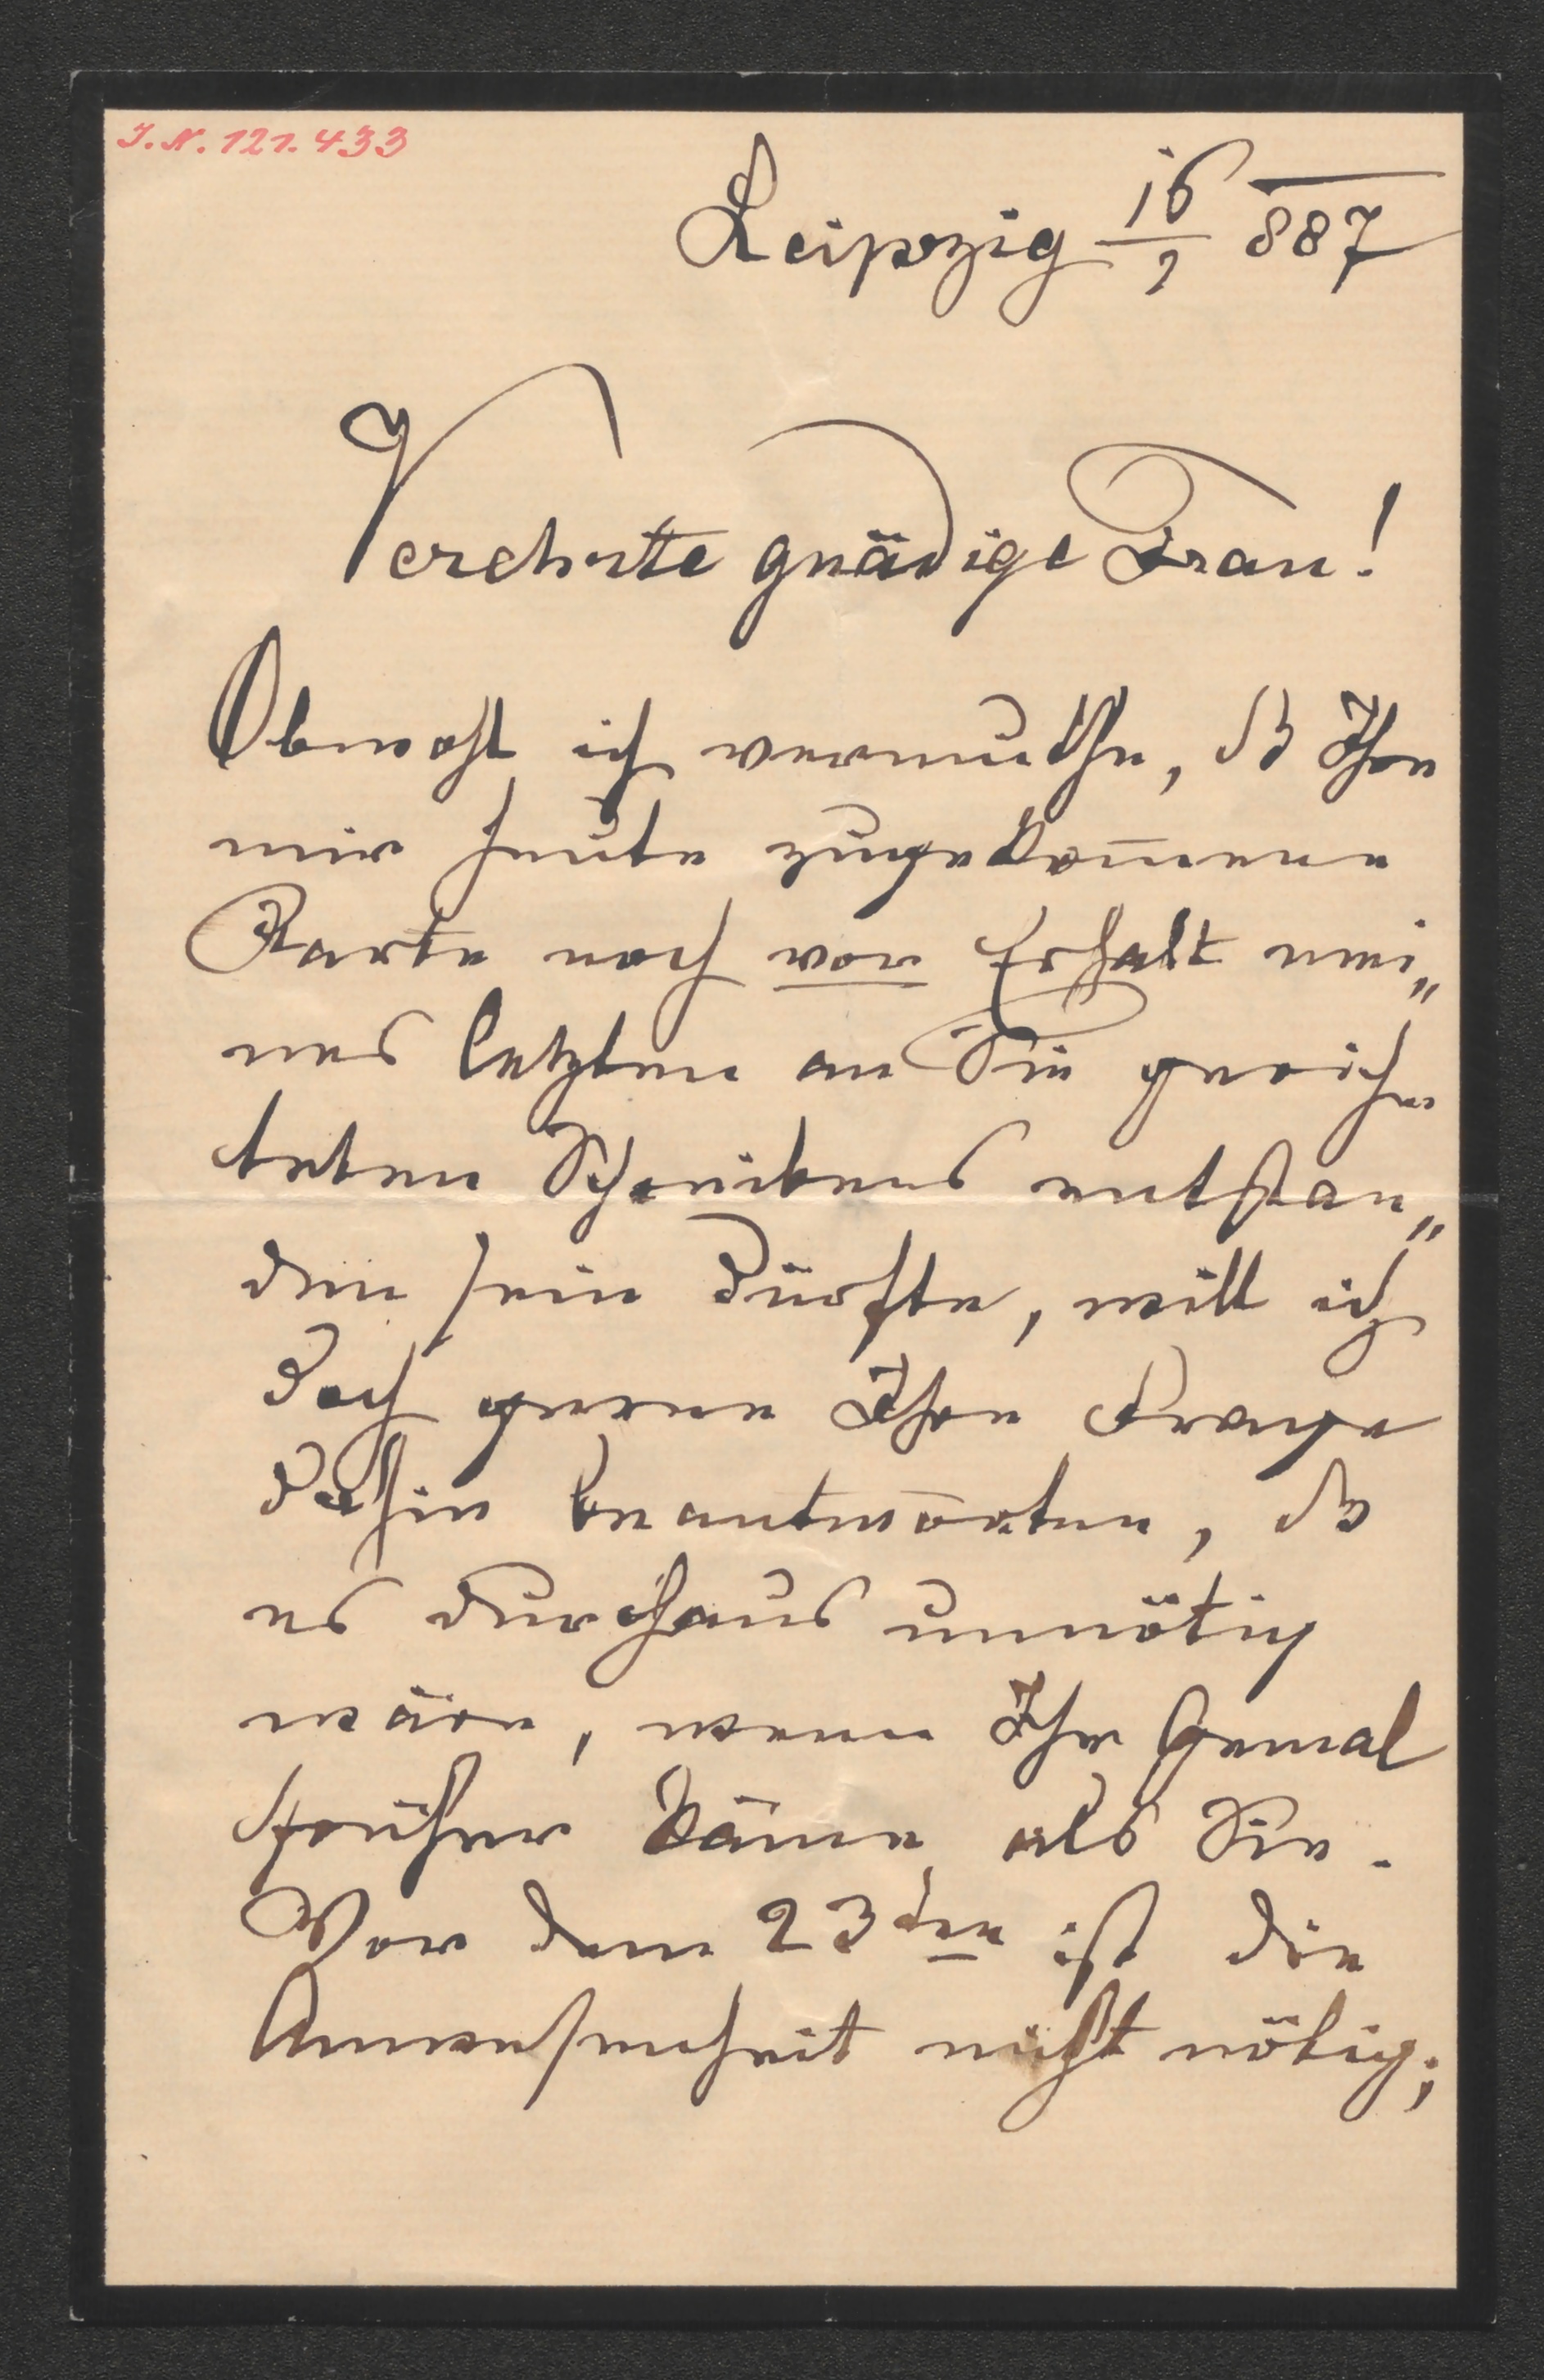 J. N. 121.433
Leipzig 16/2 887
Verehrte gnädige Frau!
Obwohl ich vermuthe, dß Ihre
mir heute zugekom̅ene
Karte noch vor Erhalt mei„
nes letzten an Sie gerich„
teten Schreibens entstan„
den sein dürfte, will ich
doch gerne Ihre Frage
dahin beantworten, dß
es durchaus unnötig
wäre, wenn Ihr Gemal
früher käme, als Sie.
Vor dem 23ten ist die
Anwesenheit nicht nötig;